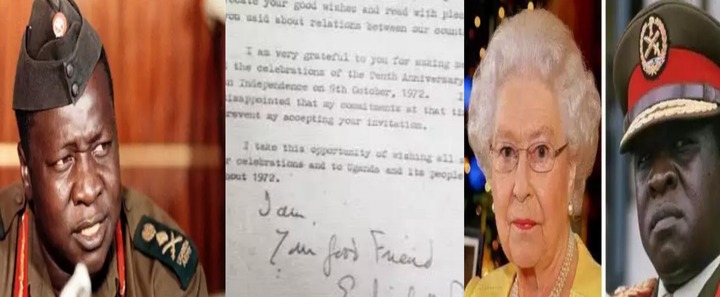 ciate your good wishes and read with pleas
you said about relations between our count
I am very grateful to you for asking me
the celebrations of the Tenth Anniversary
an Independence on 9th October, 1972. I
disappointed that my commitments at that ti
revent my accepting your invitation.
I take this opportunity of wishing all s
r celebrations and to Uganda and its people
out 1972.
I am,
Your Good Friend